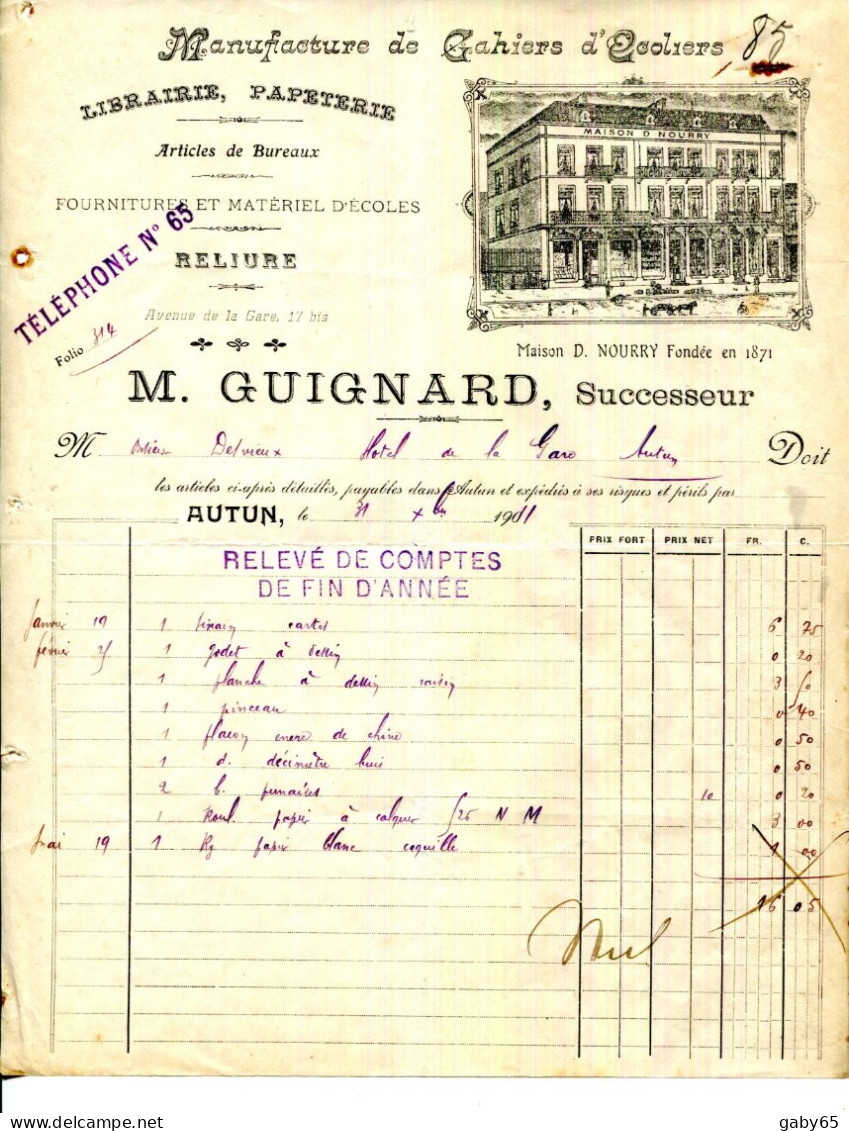 Manufacture de Cahiers d'Ecoliers 85
LIBRAIRIE, PAPETERIE
Articles de Bureaux
FOURNITURES ET MATÉRIEL D'ÉCOLES
RELIURE
TÉLÉPHONE N° 65
Avenue de la Gare, 17 bis
Folio 314
MAISON D NOURRY
Maison D. NOURRY Fondée en 1871
M. GUIGNARD, Successeur
M. Delvieux Hotel de la Gare Autun Doit
les articles ci-après détaillés, payables dans Autun et expédiés à ses risques et périls par
AUTUN, le 31 Xbre 1911
PRIX FORT PRIX NET FR. C.
RELEVÉ DE COMPTES
DE FIN D'ANNÉE
Janvier 19 1 cartes 6 75
février 25 1 godet à dessin 0 20
1 planche à dessin raisin 3 50
1 pinceau 0 40
1 flacon encre de chine 0 50
1 d. décimètre buis 0 50
2 b. punaises 10 0 20
1 Roul. papier à calquer 25 N M 3 00
Mai 19 1 Kg papier blanc coquille 1 00
16 05
gaby65